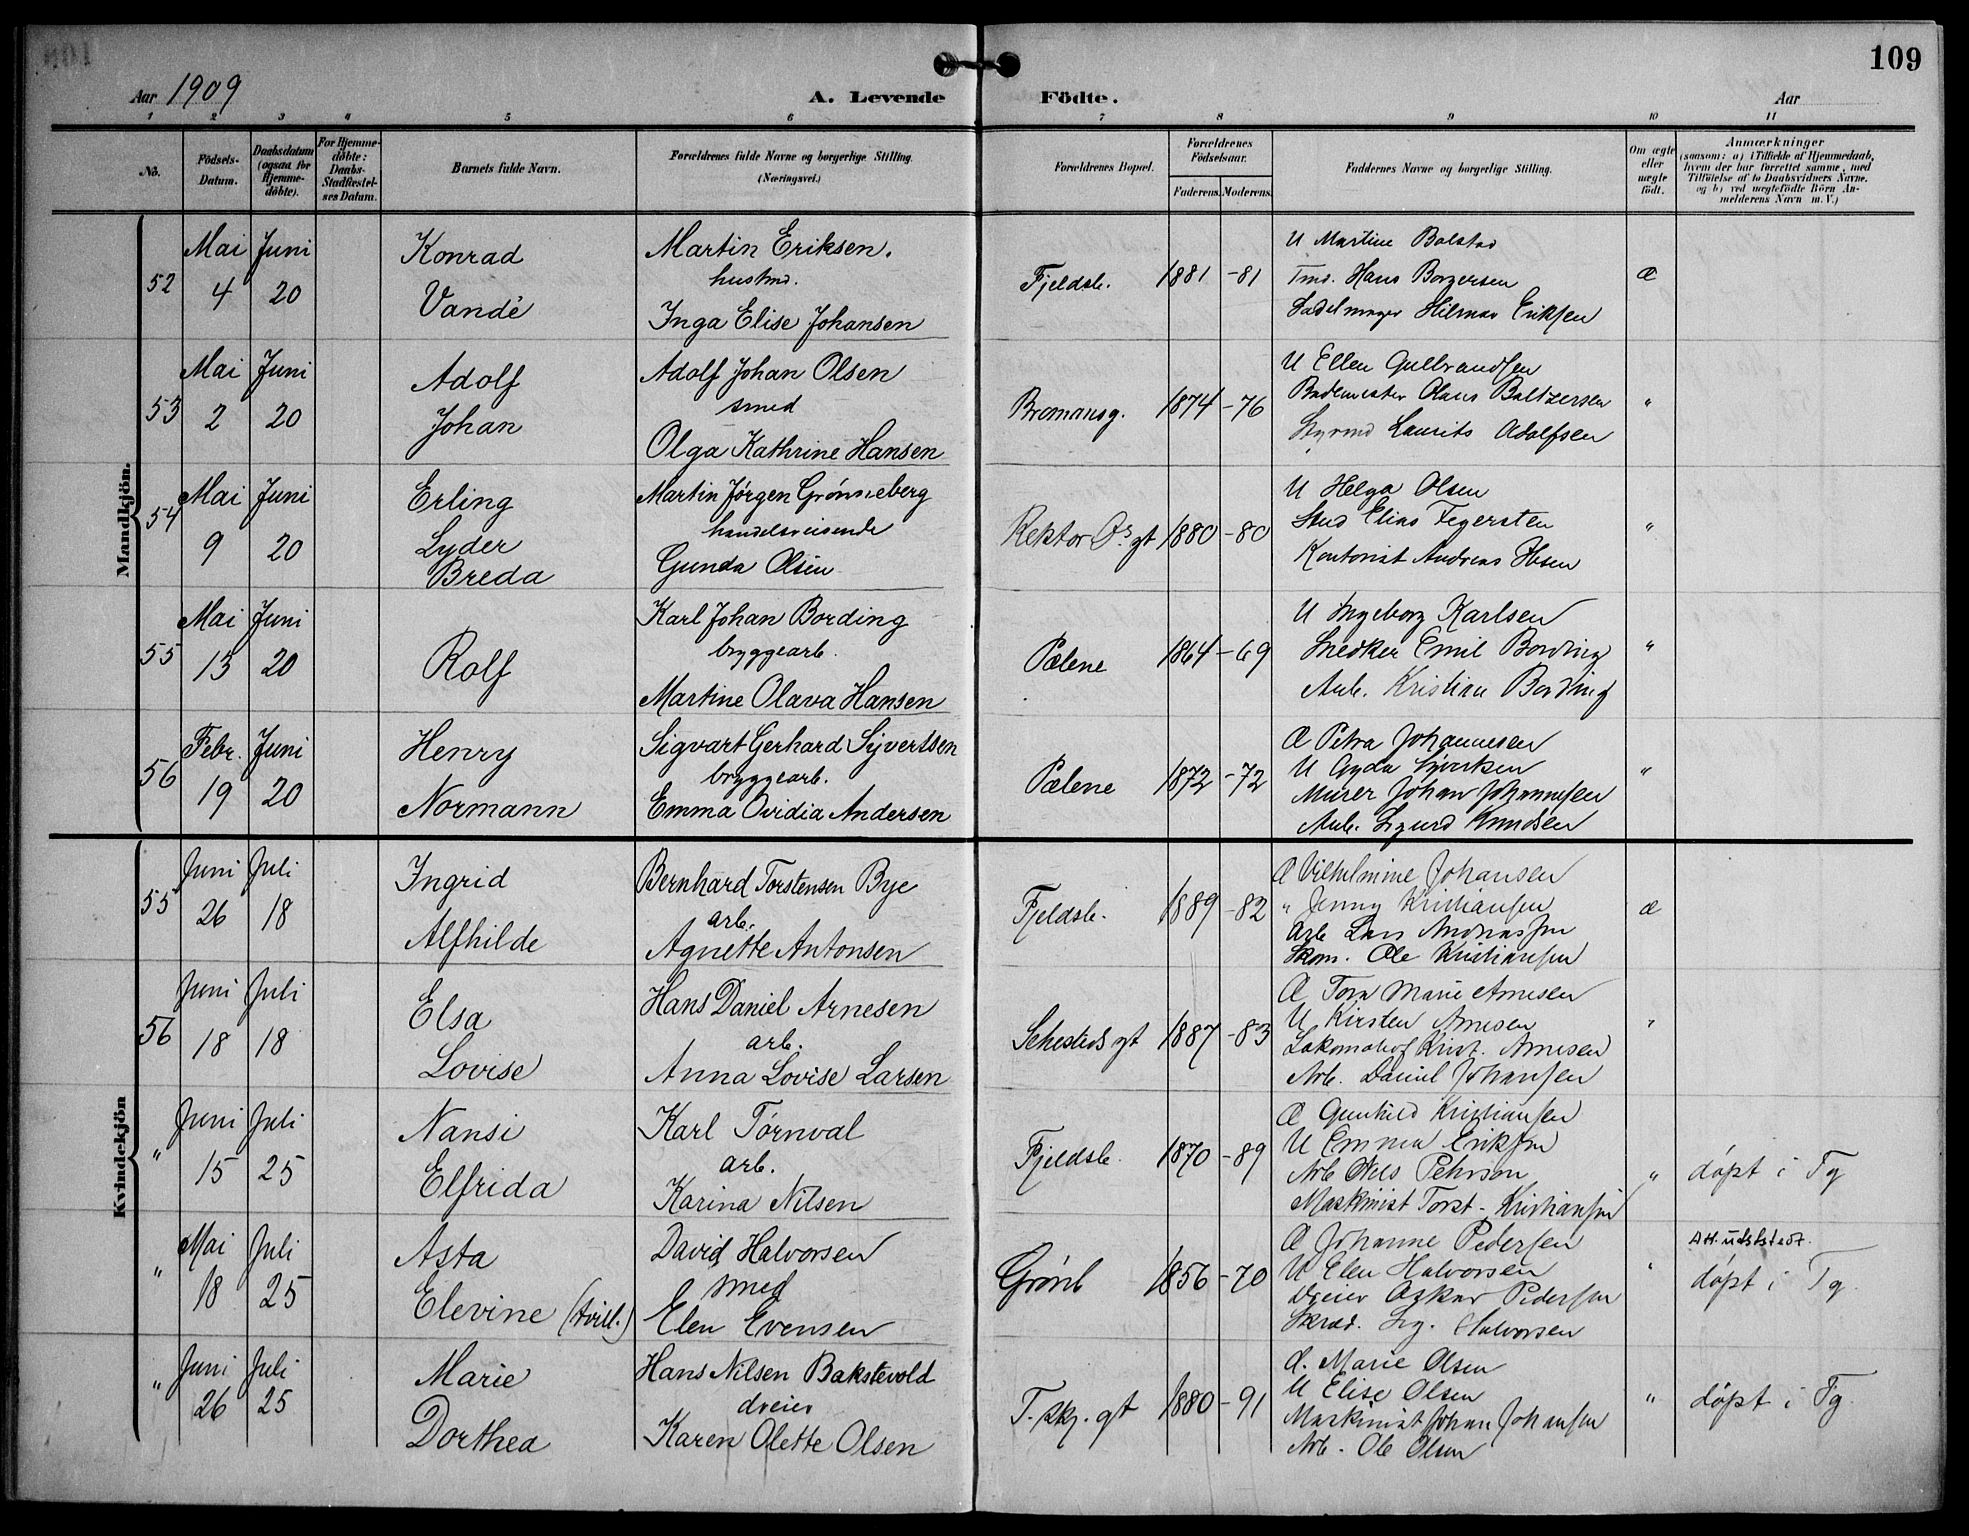 109
Aar 1909 A. Levende Födte. Aar
1 2 3 4 5 6 7 8 9 10 11
No. Födsels-Datum. Daabsdatum (ogsaa for Hjemmedöbte). For Hjemmedöbte: Daabs-Stadfæstelses Datum. Barnets fulde Navn. Forældrenes fulde Navne og borgerlige Stilling. (Næringsvei.) Forældrenes Bopæl. Forældrenes Födselsaar. Faderens. Moderens. Faddernes Navne og borgerlige Stilling. Om ægte eller uægte födt. Anmærkninger (saasom: a) i Tilfælde af Hjemmedaab, hvem der har forrettet samme, med Tilföielse af to Daabsvidners Navne. og b) ved uægtefödte Börn Anmelderens Navn m. V.)
Mandkjön.
52 Mai 4 Juni 20 Konrad Vandé Martin Eriksen. husmd. Inga Elise Johansen Fjeldsb. 1881 -81 U Martine Bolstad
Tmd. Hans Borgersen
Sadelmager Hilmar Eriksen
Æ
53 Mai 2 Juni 20 Adolf Johan Adolf Johan Olsen smed Olga Kathrine Hansen Bromansg. 1874 -76 U Ellen Gulbrandsen
Bademester Olaus Baltzersen
Styrmd Laurits Adolfsen
"
54 Mai 9 Juni 20 Erling Lyder Breda Martin Jørgen Grønneberg handelsreisende Gunda Olsen Rektor Ø's gt 1880 -80 U Helga Olsen
Stud Elias Fegersten
Kontorist Andreas Ibsen
"
55 Mai 13 Juni 20 Rolf Karl Johan Bording bryggearb. Martine Olava Hansen Pælene 1864 -69 U Ingeborg Karlsen
Snedker Emil Bording
Arb. Kristian Bording
"
56 Febr. 19 Juni 20 Henry Normann Sigvart Gerhard Syvertsen bryggearb. Emma Ovidia Andersen Pælene 1872 -72 Æ Petra Johannesen
U Gyda Syvertsen
Murer Johan Johannesen
Arb. Sigurd Knudsen
"
Kvindekjön
55 Juni 26 Juli 18 Ingrid Alfhilde Bernhard Torstensen Bye arb. Agnette Antonsen Fjeldsb. 1889 -82 Æ Vilhelmine Johansen
" Jenny Kristiansen
Arb Lars Andreassen
Skom. Ole Kristiansen
Æ
56 Juni 18 Juli 18 Elsa Lovise Hans Daniel Arnesen arb. Anna Lovise Larsen Sehesteds gt 1887 -83 Æ Tora Marie Arnesen
U Kirsten Arnesen
Lokomotivf Krist. Arnesen
Arb. Daniel Johansen
"
" Juni 15 Juli 25 Nansi Elfrida Karl Törnval arb. Karina Nilsen Fjeldsb. 1870 -89 Æ Gunhild Kristiansen
U Emma Eriksen
Arb Nils Pehrson
Maskinist Torst. Kristiansen
" döpt i Tg
" Mai 18 Juli 25 Asta Elevine (tvill.) David Halvorsen smed Elen Evensen Grönl 1856 -70 Æ Johanne Pedersen
U Elen Halvorsen
Dreier Oskar Pedersen
Skræd. Sig. Halvorsen
" Att. udstedt. döpt i Tg
" Juni 26 Juli 25 Marie Dorthea Hans Nilsen Bakstevold dreier Karen Olette Olsen T. skj. gt 1880 -91 Æ. Marie Olsen
U Elise Olsen
Maskinist Johan Johansen
Arb. Ole Olsen
" döpt i Tg.